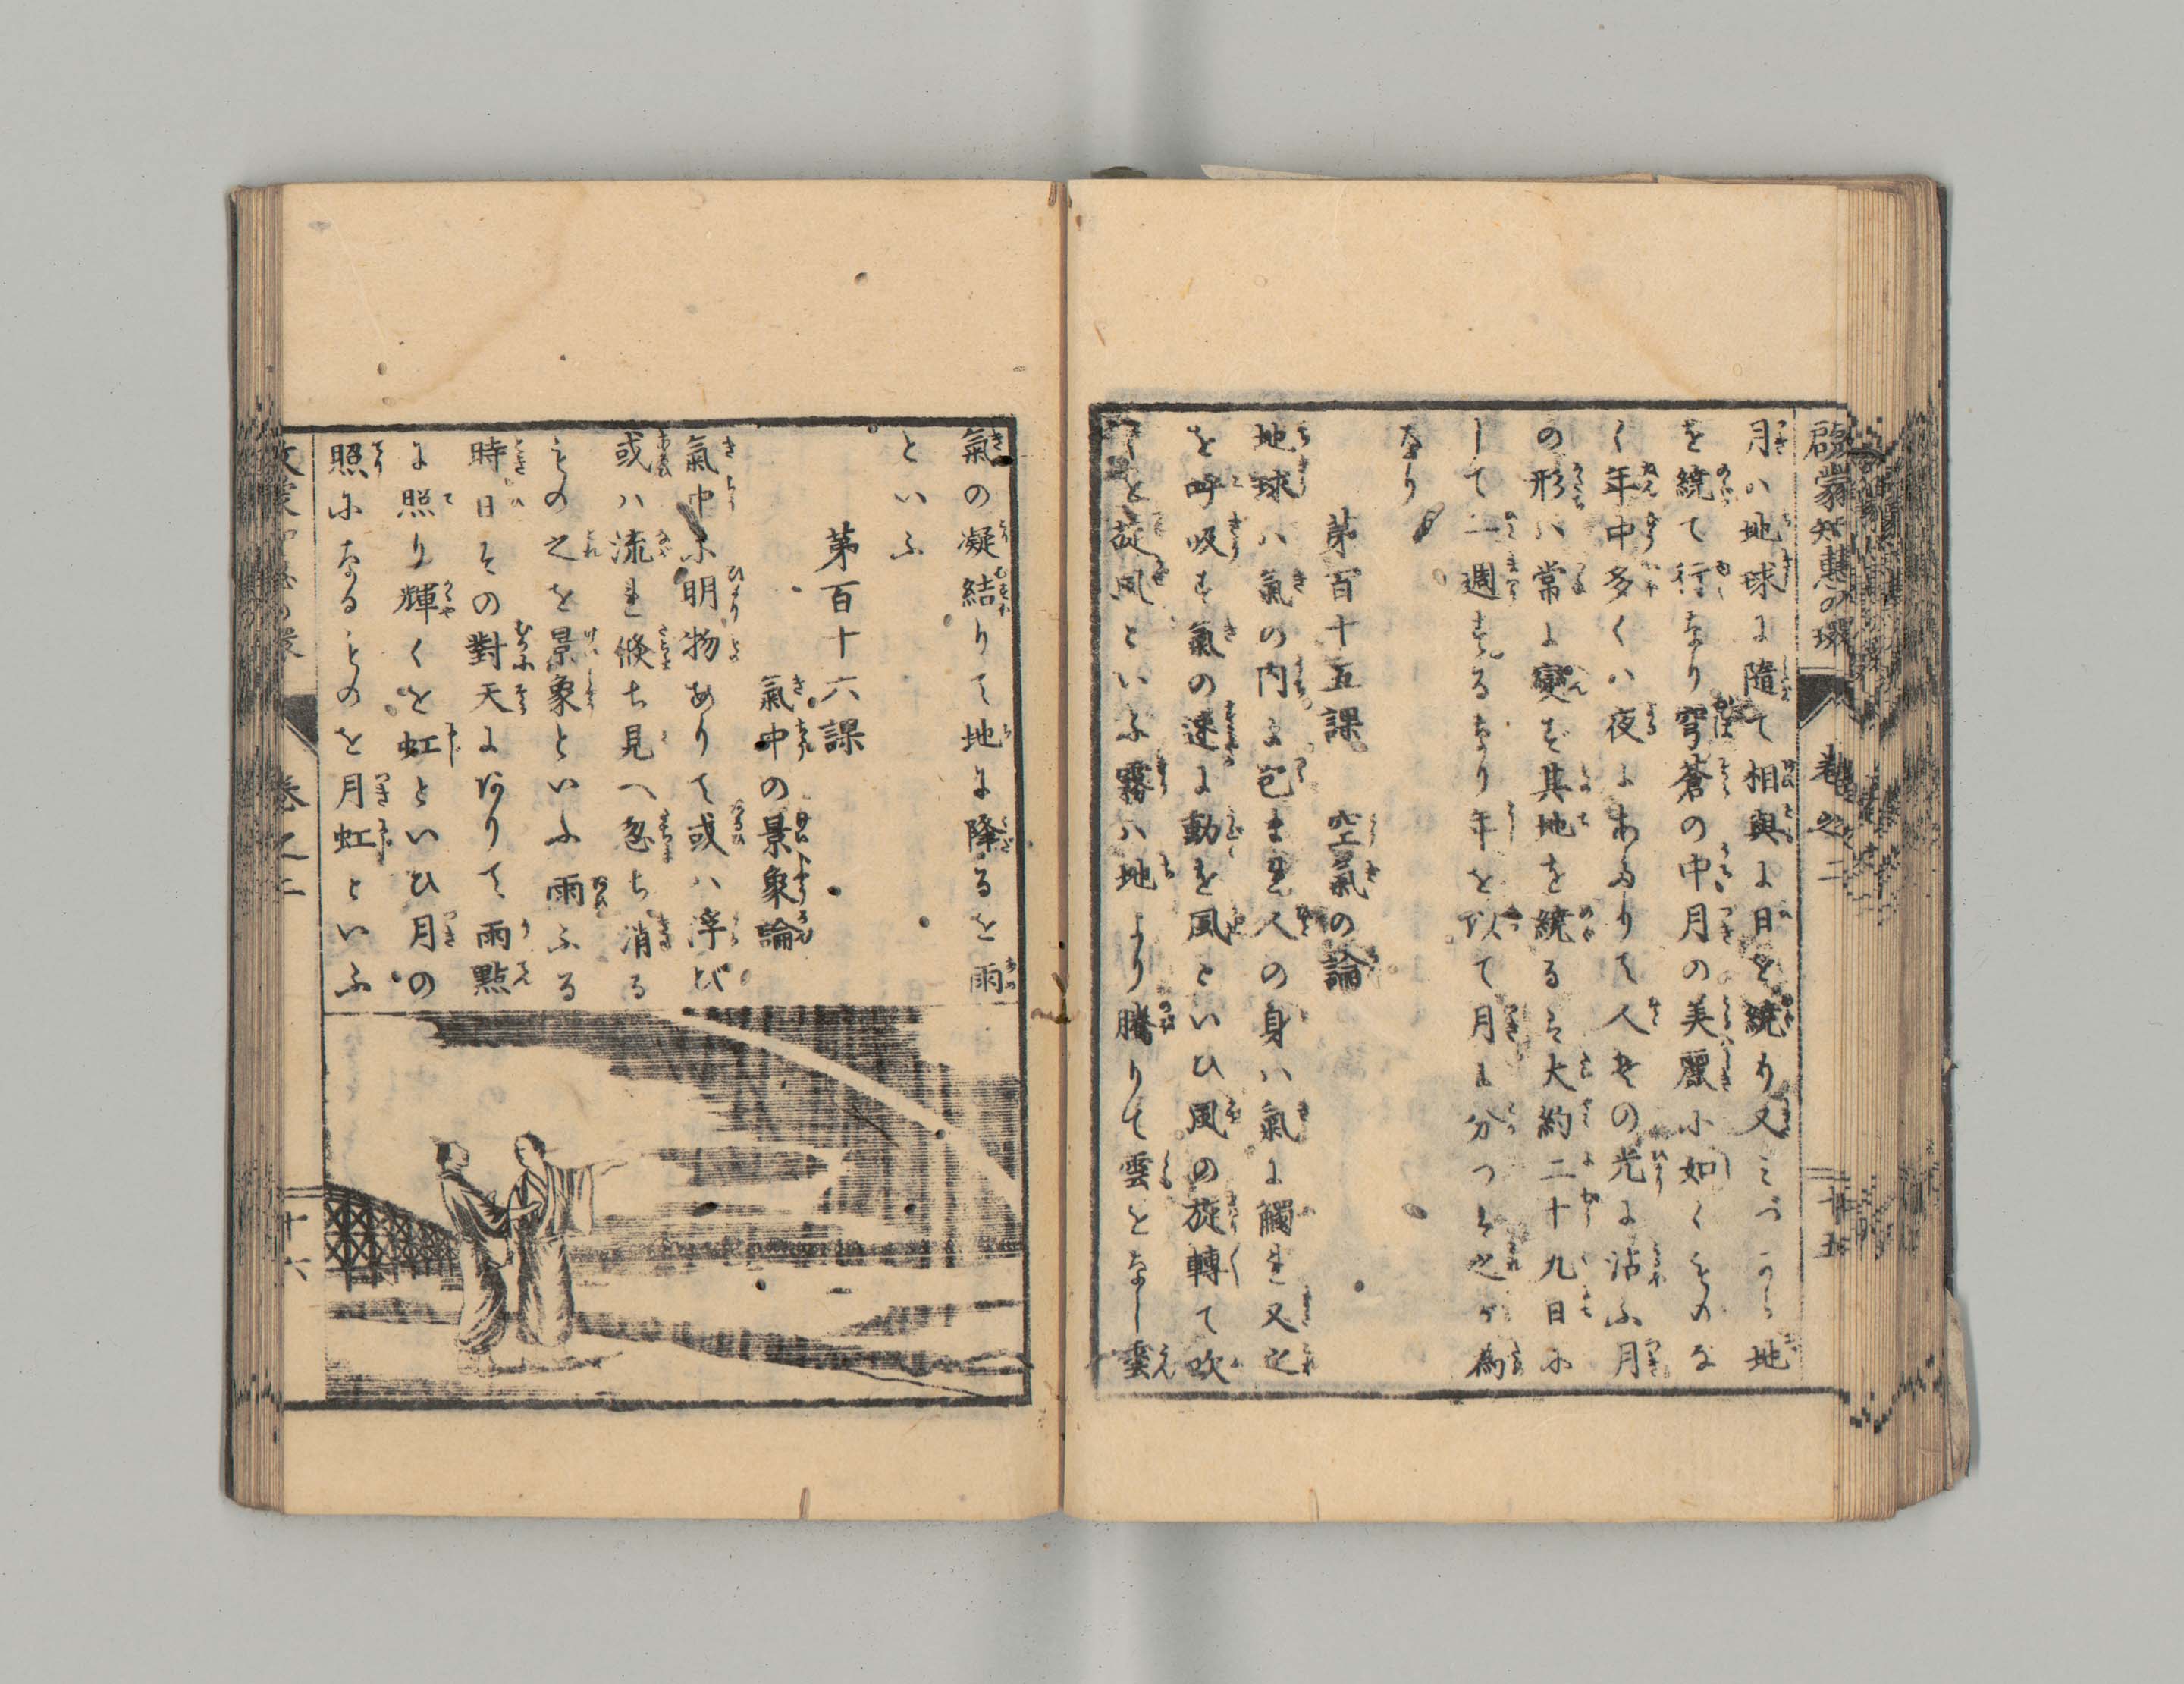 啓蒙知慧の環 卷之二 十五
月ハ地球に隨て相與に日を繞り又みづから地
を繞て行なり穹蒼の中月の美麗に如くものな
く年中多くハ夜にあたりて人其の光に沾ふ月
の形ハ常に變ず其地を繞るに大約二十九日に
して一週するなり年を以て月に分つハ之が為
なり
第百十五課 空氣の論
地球ハ氣の内に包まれ人の身ハ氣に觸れ又之
を呼吸す氣の速に動を風といひ風の旋轉て吹
を颱風といふ霧ハ地より騰りて雲となし雲
氣の凝結りて地に降るを雨
といふ
第百十六課
氣中の景象論
氣中に明物ありて或ハ浮び
或ハ流れ倏ち見へ忽ち消る
もの之を景象といふ雨ふる
時日その對天にありて雨點
に照り輝くを虹といひ月の
照になるものを月虹といふ
卷之二 十六